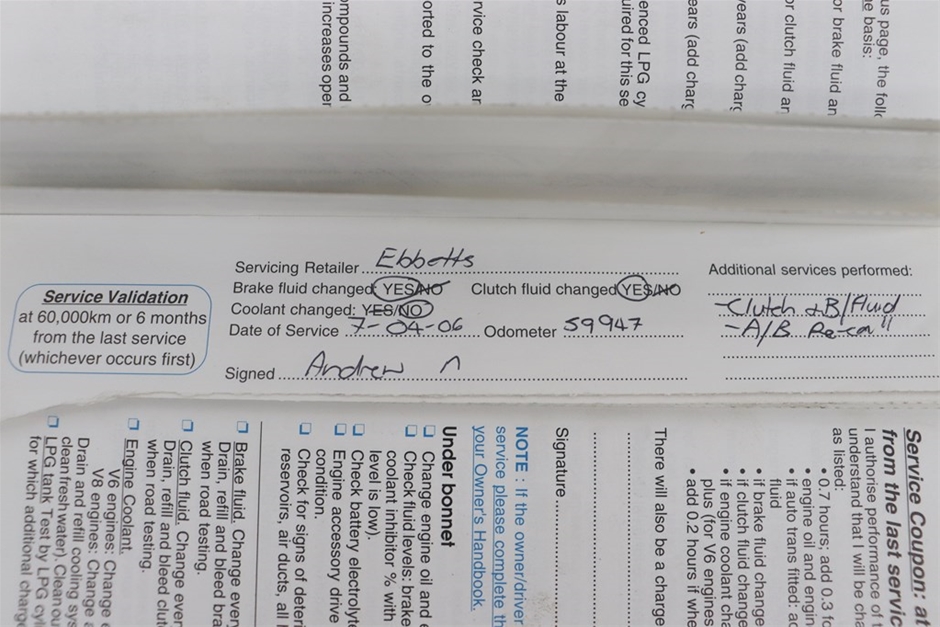 us page, the follo
e basis:
or brake fluid an
or clutch fluid an
years (add charg
ears (add charg
enced LPG cy
uired for this se
s labour at the
rvice check ar
orted to the o
ompounds and
increases oper
Service Validation
at 60,000km or 6 months
from the last service
(whichever occurs first)
Servicing Retailer Ebbetts
Brake fluid changed: YES/NO Clutch fluid changed YES/NO
Coolant changed: YES/NO
Date of Service 7-04-06 Odometer 59947
Signed Andrew
Additional services performed:
-Clutch +B/Fluid
-A/B Re-call
Service Coupon: at
from the last servic
I authorise performance of t
understand that I will be cha
as listed:
• 0.7 hours; add 0.3 fo
• engine oil and engin
• if auto trans fitted: ad
fluid
• if brake fluid change
• if clutch fluid change
• if engine coolant cha
plus (for V6 engines
• add 0.2 hours if whe
There will also be a charge
Signature
NOTE : If the owner/driver
service please complete th
your Owner's Handbook.
Under bonnet
Change engine oil and e
Check fluid levels: brake
coolant inhibitor % with
level is low).
Check battery electrolyt
Engine accessory drive
condition.
Check for signs of deteri
reservoirs, air ducts, all
Brake fluid. Change every
Drain, refill and bleed bra
when road testing.
Clutch fluid. Change ever
Drain, refill and bleed clut
when road testing.
Engine Coolant.
V6 engines: Change e
V8 engines: Change a
Drain and refill cooling sys
clean fresh water). Clean ou
LPG tank Test by LPG cyli
for which additional charge